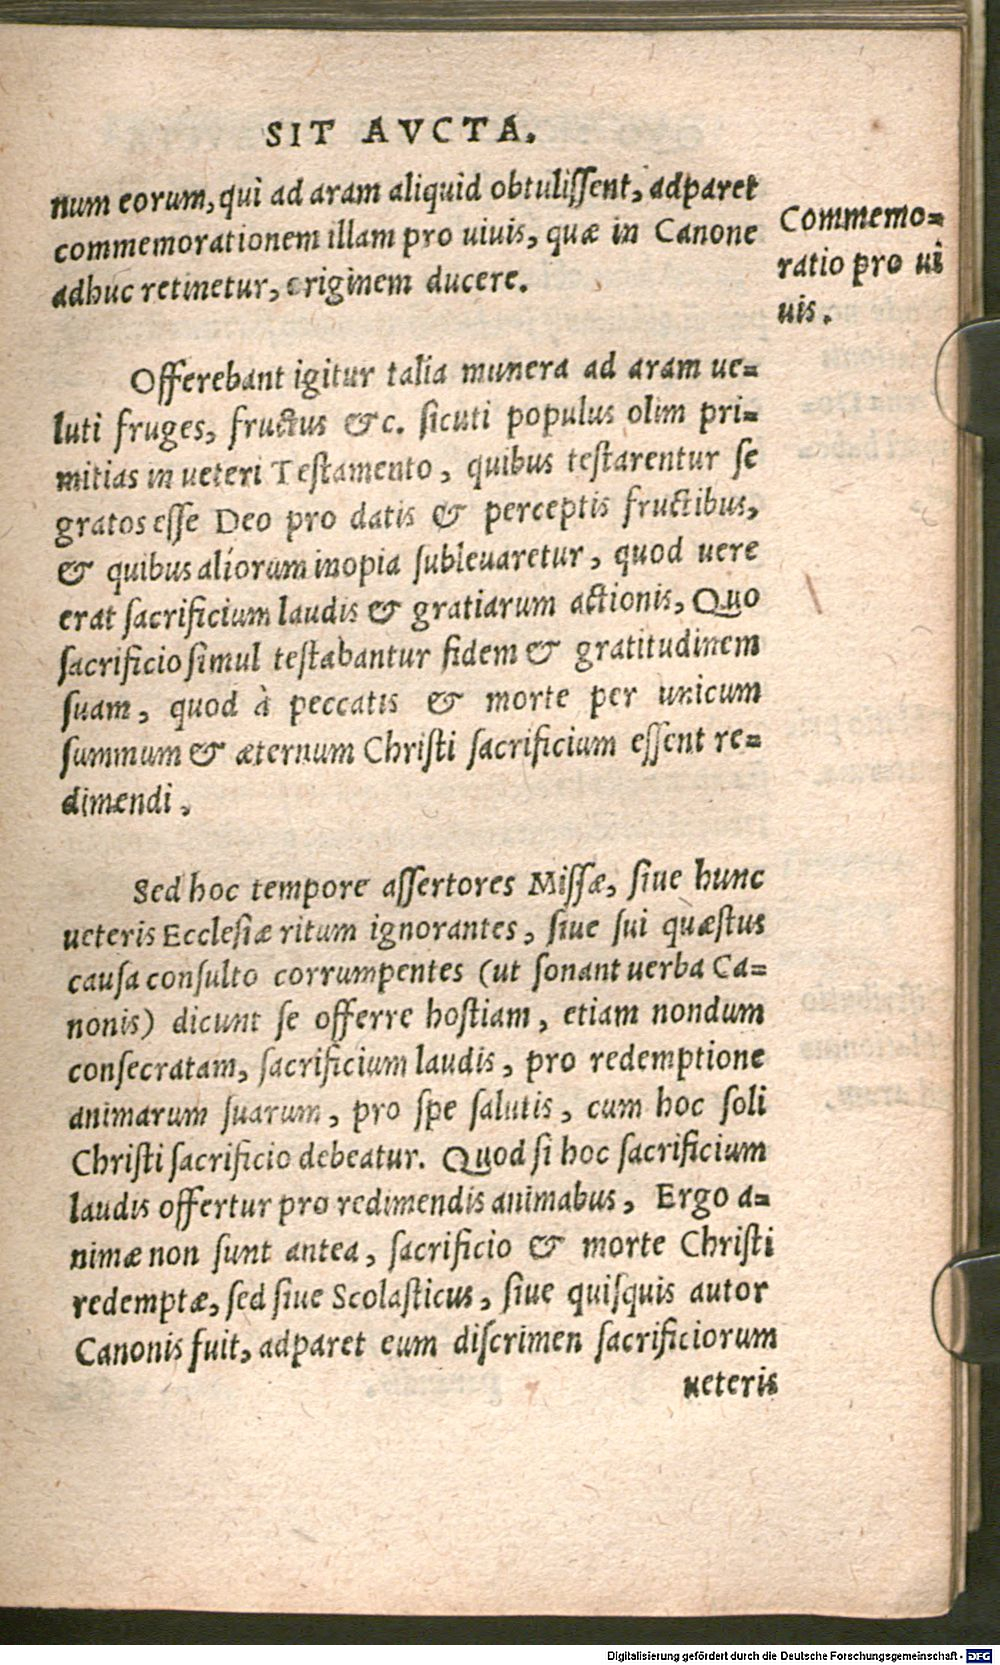 SIT AVCTA.
num eorum, qui ad aram aliquid obtuliſſent, adparet
commemorationem illam pro uiuis, quæ in Canone
adhuc retinetur, originem ducere.
Commemo=
ratio pro ui
uis.
Offerebant igitur talia munera ad aram ue=
luti fruges, fructus &c. ſicuti populus olim pri=
mitias in ueteri Teſtamento, quibus teſtarentur ſe
gratos eſſe Deo pro datis & perceptis fructibus,
& quibus aliorum inopia ſubleuaretur, quod uere
erat ſacrificium laudis & gratiarum actionis, Quo
ſacrificio ſimul teſtabantur fidem & gratitudinem
ſuam, quod à peccatis & morte per unicum
ſummum & æternum Chriſti ſacrificium eſſent re=
dimendi,
Sed hoc tempore aſſertores Miſſæ, ſiue hunc
ueteris Eccleſiæ ritum ignorantes, ſiue ſui quæſtus
cauſa conſulto corrumpentes (ut ſonant uerba Ca=
nonis) dicunt ſe offerre hoſtiam, etiam nondum
conſecratam, ſacrificium laudis, pro redemptione
animarum ſuarum, pro ſpe ſalutis, cum hoc ſoli
Chriſti ſacrificio debeatur. Quod ſi hoc ſacrificium
laudis offertur pro redimendis animabus, Ergo a=
nimæ non ſunt antea, ſacrificio & morte Chriſti
redemptæ, ſed ſiue Scolaſticus, ſiue quiſquis autor
Canonis fuit, adparet eum diſcrimen ſacrificiorum
ueteris
Digitalisierung gefördert durch die Deutsche Forschungsgemeinschaft - DFG